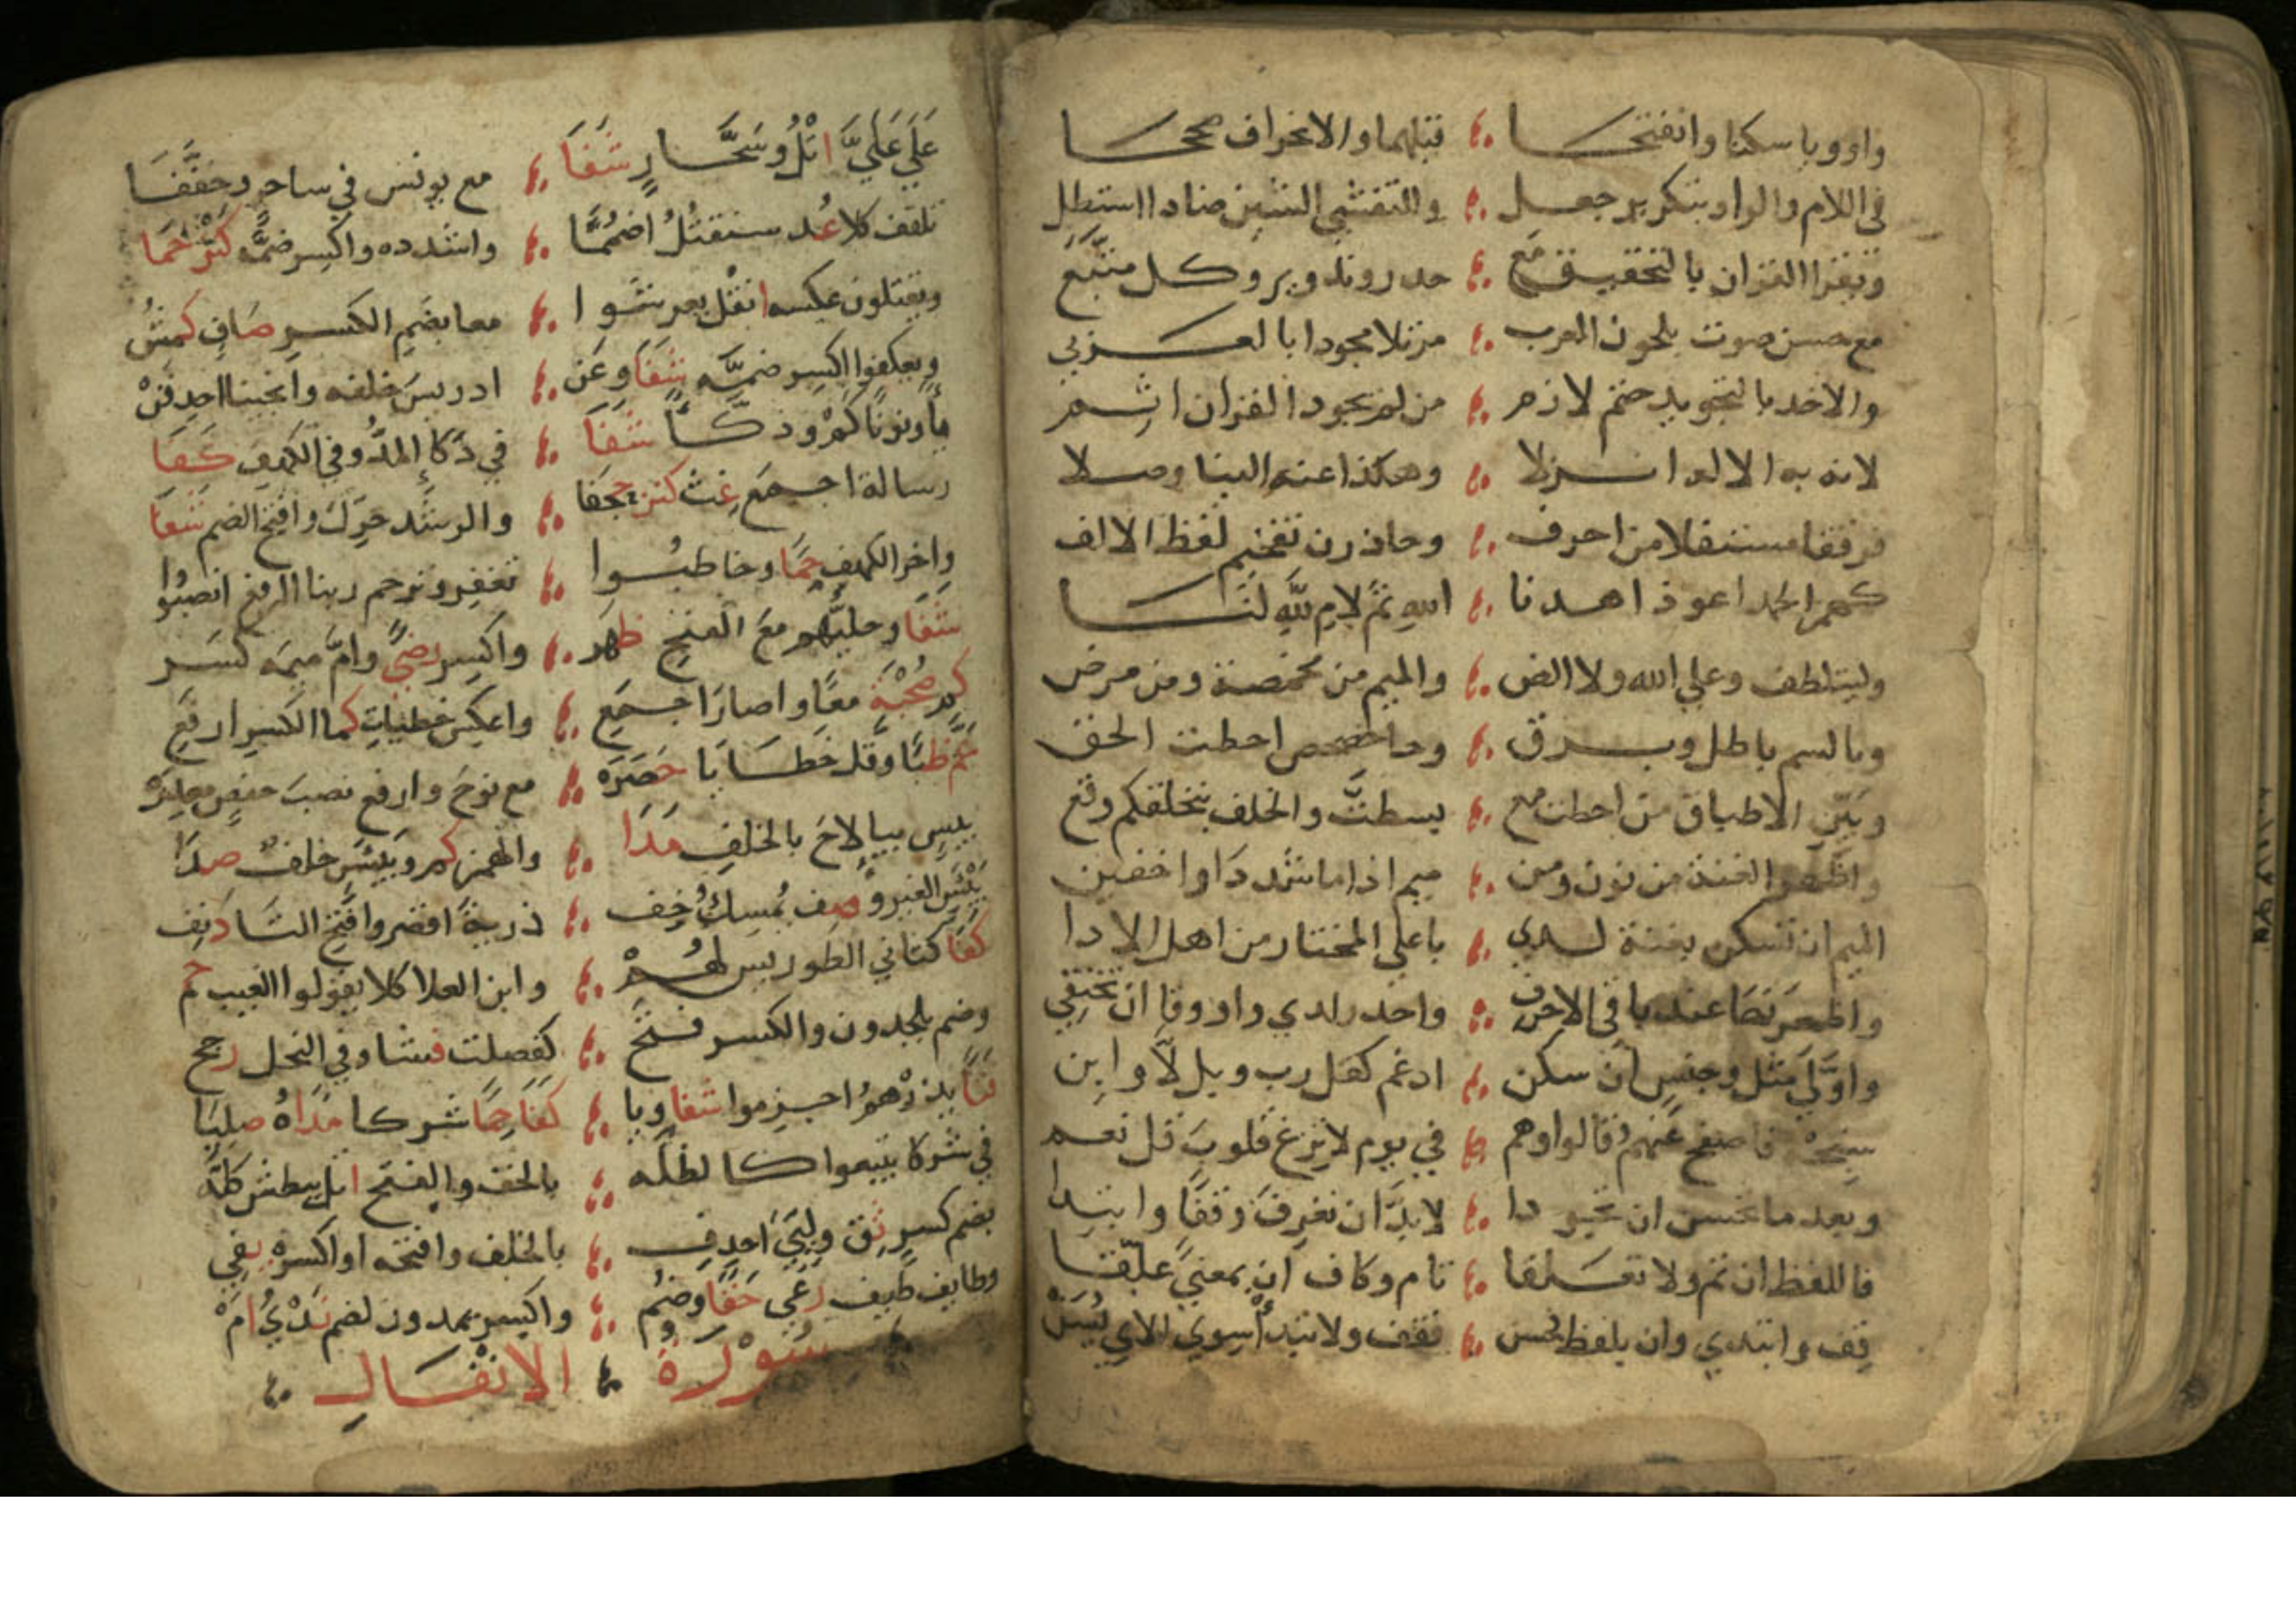 واو ويا سكنا وانفتحا ؛ قبلهما والانحراف صححا
في اللام والرا وبتكرير جعل ؛ وللتفشي الشين ضادا استطل
ويقرا القران بالتحقيق مع ؛ حدر وتدوير وكل متبع
مع حسن صوت بلحون العرب ؛ مرتلا مجودا بالعربي
والاخذ بالتجويد حتم لازم ؛ من لم يجود القران اثم
لانه به الاله انزلا ؛ وهكذا عنه الينا وصلا
فرققا مستفلا من احرف ؛ وحاذرن تفخيم لفظ الالف
كهمز الحمد اعوذ اهدنا ؛ الله ثم لام لله لنا
وليتلطف وعلى الله ولا الض ؛ والميم من مخمصة ومن مرض
وبا بسم باطل وبرق ؛ وحا حصحص احطت الحق
وبين الاطباق من احطت مع ؛ بسطت والخلف بنخلقكم وقع
واظهر الغنة من نون ومن ؛ ميم اذا ما شددا واخفين
الميم ان تسكن بغنة لدي ؛ با على المختار من اهل الادا
واظهرنها عند باقي الاحرف ؛ واحذر لدي واو وفا ان تختفي
واولي مثل وجنس ان سكن ؛ ادغم كقل رب وبل لا وابن
سبحه فاصفح عنهم قالوا وهم ؛ في يوم لا تزغ قلوب قل نعم
وبعد ما تحسن ان تجودا ؛ لا بد ان تعرف وقفا وابتدا
فاللفظ ان تم ولا تعلقا ؛ تام وكاف ان بمعنى علقا
قف وابتدي وان بلفظ فحسن ؛ فقف ولا تبدأ سوي الاي يسن
على علي اتل وسحار شفا ؛ مع يونس في ساحر وخففا
تلقف كلا عد سنقتل اضمما ؛ واشدده واكسر ضمه كنز حما
ويقتلون عكسه انقل يعرشوا ؛ معا بضم الكسر صاف كمش
ويعكفوا اكسر ضمه شفا وعن ؛ ادريس خلفه وانجينا احذفن
يا ونونا كم ودكا شفا ؛ في دكا المد وفي الكهف كفا
رسالة اجمع غث كنز حجفا ؛ والرشد حرك وافتح الضم شفا
واخر الكهف حما وخاطبوا ؛ تغفر وترحم ربنا الرفع انصبوا
شفا وحليهم مع الفتح ظهر ؛ واكسر رضى وام ميمه كسر
كم صحبة معا واصار اجمع ؛ واعكس خطيات كما الكسر ارفع
عم ظبا وقل خطايا حصره ؛ مع نوح وارفع نصب حفص معذره
بيس بياء لاح بالخلف مدا ؛ والهمز كم وبيئس خلف صدا
بئيس الغير وصف يمسك خف ؛ ذرية اقصر وافتح التا دنف
كفا كثاني الطور يس لهم ؛ وابن العلا كلا يقولوا الغيب حم
وضم يلحدون والكسر فتح ؛ كفصلت فشا وفي النحل رجح
فتا يذرهم اجزموا شفا ويا ؛ كفا حما شركا مداه صليا
في شركا يتبعوا كالظله ؛ بالخف والفتح اتل يبطش كله
بضم كسر ثق وليي احذف ؛ بالخلف وافتحه او اكسره يفي
وطايف طيف رعى حقا وضم ؛ واكسر يمدون لضم ثدي ام
سورة الانفال